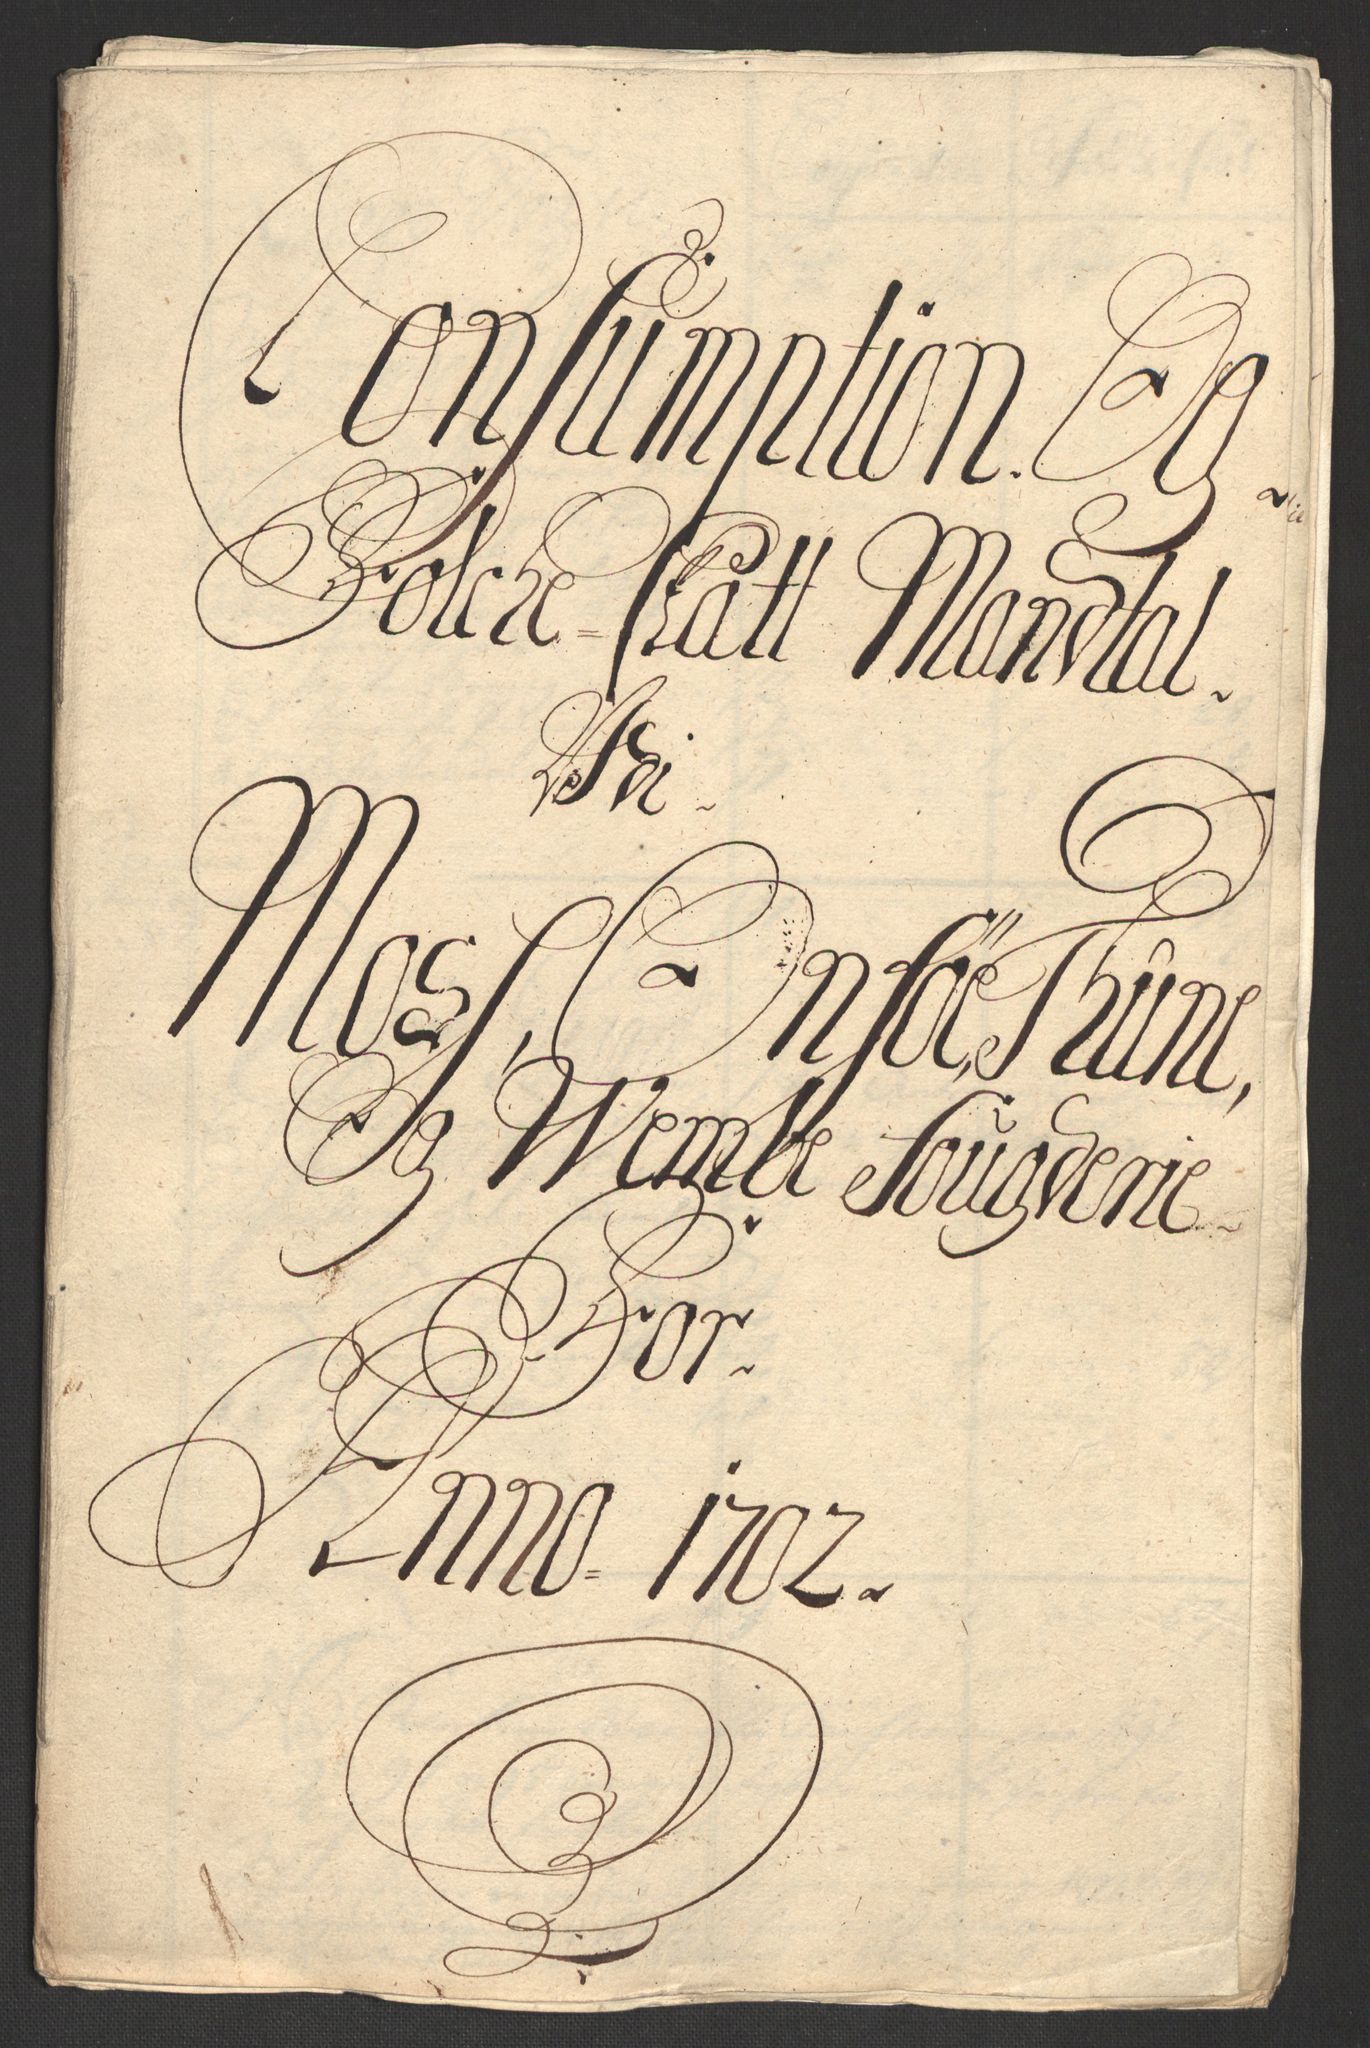 Consumption. Og
Folche=skatt Mandtal
Af
Moss, Onsöe, Thune,
Og Wemble fougderie
For
Anno= 1702.